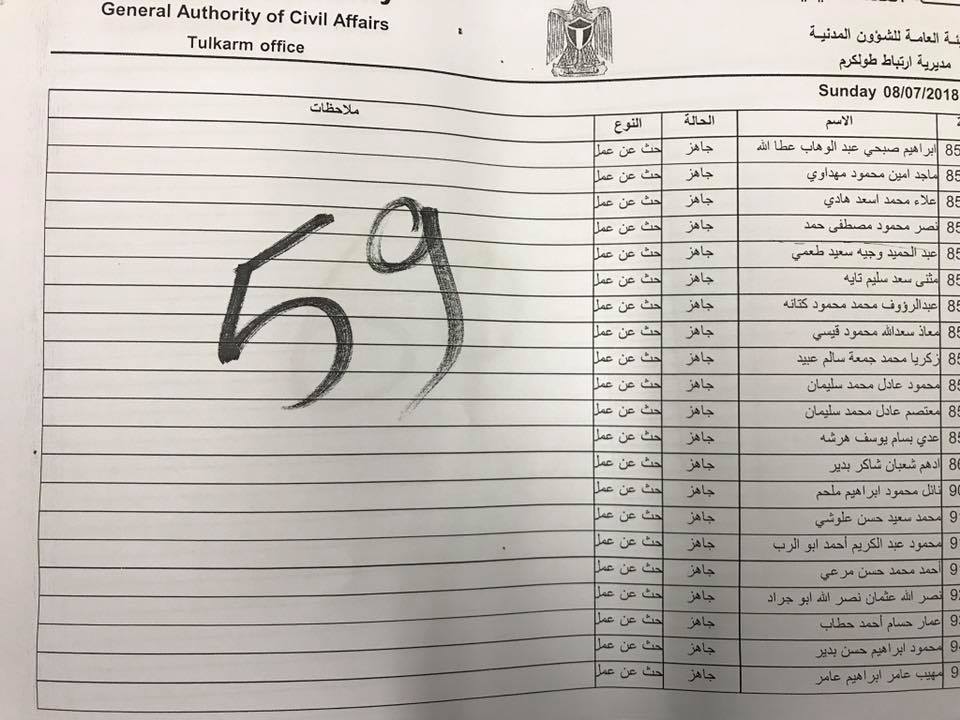 General Authority of Civil Affairs
Tulkarm office
العامة للشؤون المدنية
مديرية ارتباط طولكرم
Sunday 08/07/2018
الاسم الحالة النوع ملاحظات
85 ابراهيم صبحي عبد الوهاب عطا الله جاهز حث عن عمل
85 ماجد امين محمود مهداوي جاهز حث عن عمل
85 علاء محمد اسعد هادي جاهز حث عن عمل
85 نصر محمود مصطفى حمد جاهز حث عن عمل
85 عبد الحميد وجيه سعيد طعمي جاهز حث عن عمل
85 مثنى سعد سليم تايه جاهز حث عن عمل
85 عبدالرؤوف محمد محمود كتانه جاهز حث عن عمل
85 معاذ سعدالله محمود قيسي جاهز حث عن عمل
85 زكريا محمد جمعة سالم عبيد جاهز حث عن عمل
85 محمود عادل محمد سليمان جاهز حث عن عمل
85 معتصم عادل محمد سليمان جاهز حث عن عمل
85 عدي بسام يوسف هرشه جاهز حث عن عمل
86 ادهم شعبان شاكر بدير جاهز حث عن عمل
90 نائل محمود ابراهيم ملحم جاهز حث عن عمل
91 محمد سعيد حسن علوشي جاهز حث عن عمل
91 محمود عبد الكريم أحمد ابو الرب جاهز حث عن عمل
91 أحمد محمد حسن مرعي جاهز حث عن عمل
92 نصر الله عثمان نصر الله ابو جراد جاهز حث عن عمل
93 عمار حسام أحمد حطاب جاهز حث عن عمل
94 محمود ابراهيم حسن بدير جاهز حث عن عمل
9 مهيب عامر ابراهيم عامر جاهز حث عن عمل
59